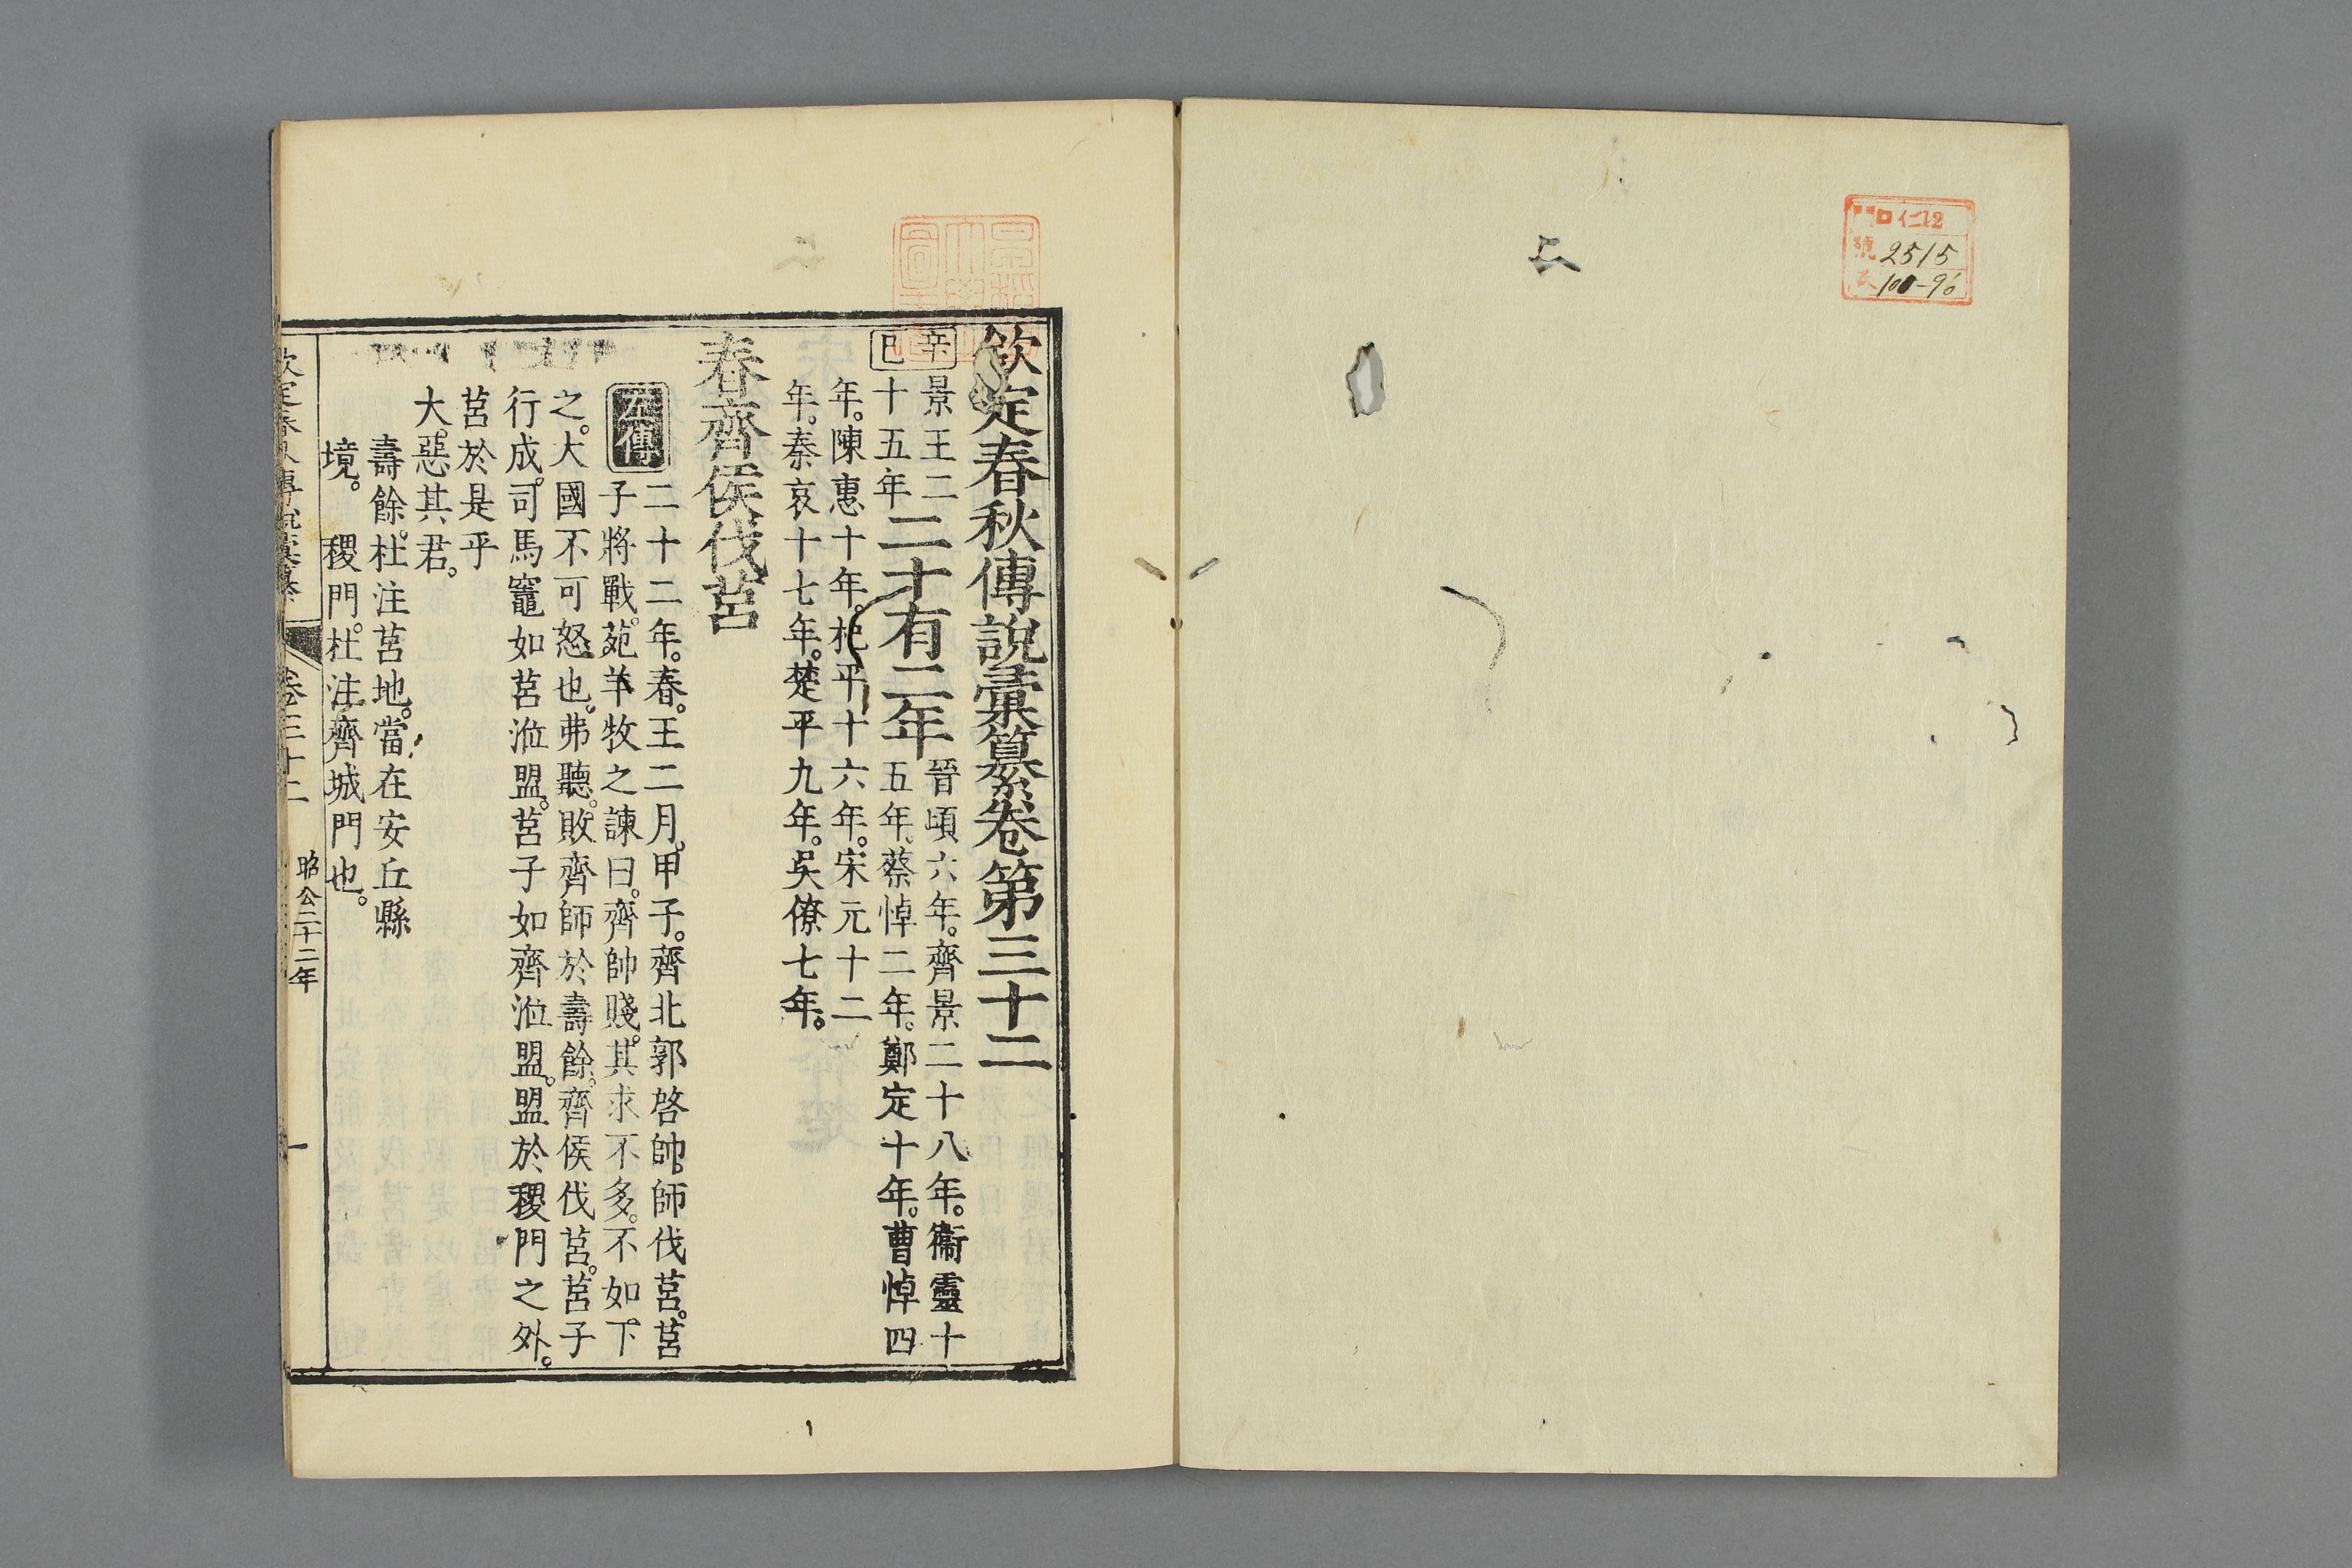 口仁12
號 2515
100-96
欽定春秋傳說彙纂卷第三十二
辛巳
景王二
十五年
二十有二年
晉頃六年。齊景二十八年。衞靈十
五年。蔡悼二年。鄭定十年。曹悼四
年。陳惠十年。杞平十六年。宋元十二
年。秦哀十七年。楚平九年。吳僚七年。
春齊侯伐莒
左傳
二十二年。春。王二月。甲子。齊北郭啓帥。師伐莒。莒
子將戰。苑羊牧之諫曰。齊帥賤。其求不多。不如。下
之。大國不可怒也。弗聽。敗齊師於壽餘。齊侯伐莒。莒子
行成。司馬竈如莒涖盟。莒子如齊涖盟。盟於稷門之外。
莒於是乎
大。惡其君。
壽餘。杜注莒地。當在安丘縣
境。 稷門。杜注齊城門也。
欽定春秋傳說彙纂 卷三十二 昭公二十二年 一